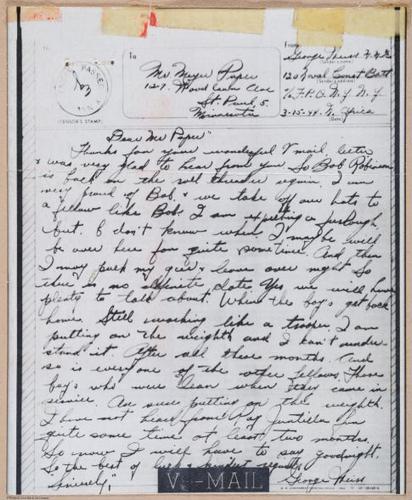 To
From
Mr Meyer Paper
George Theis
127 Wood
Ave
120 Naval Const Batt
St. Paul, 5.
Minnesota
3-15-44 N. Africa
(CENSOR'S STAMP)
Dear Mr Paper"
Thanks for your wonderful V mail letter
& was very glad to hear from you So Bob Robinson
is back in the
again. I am
very proud of Bob. & we take off our hats to
a fellow like Bob. I am expecting a furlough
but I don't know when I may be well
be over here for quite sometime. And then
I may pack my gear & leave over night So
there is no definite date Yes we will have
plenty to talk about. When the boys get back
home. Still working like a trooper. I am
putting on the weight and I can't under-
stand it. After all these months. And
so is everyone of the other fellows. Those
boys who were lean when they came in
service. Are sure putting on the weight.
I have not heard from Ray
for
quite some time at least two months.
So now I will have to say goodnight.
So the best of luck & kindest regards
Sincerely,"
George Theis
V-MAIL